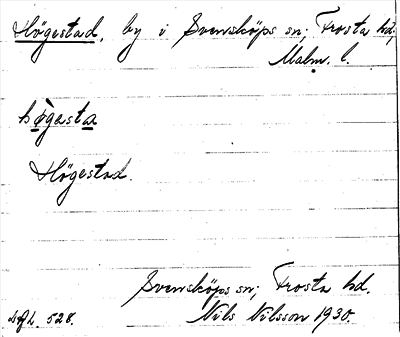 Högestad, by i Svensköps sn; Frosta hd;
Malm. l.
högasta
Högestad.
Svensköps sn; Frosta hd.
Nils Nilsson 1930.
528.